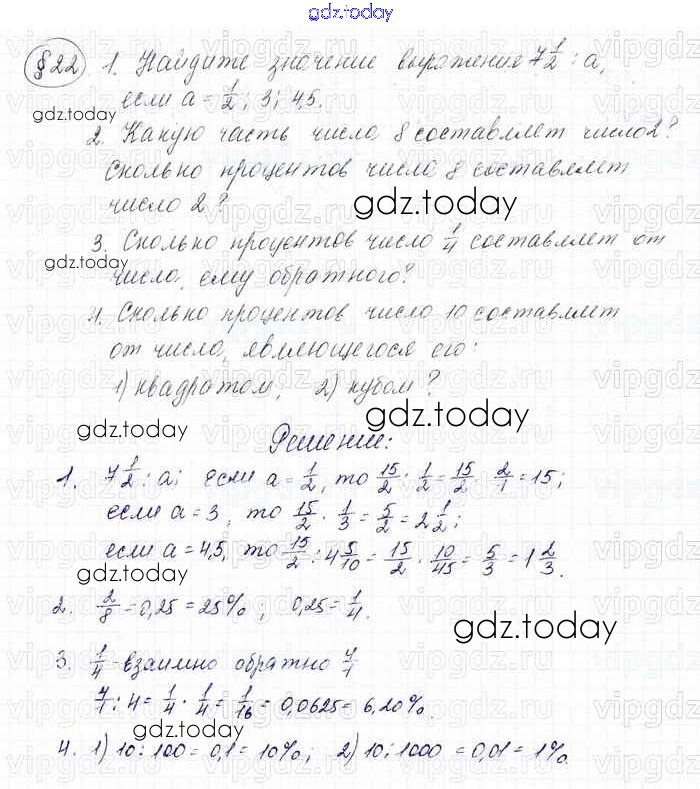 gdz.today
§22 1. Найдите значение выражения 7 1/2 : a,
если a = 1/2; 3; 4,5.
gdz.today
2. Какую часть числа 8 составляет число 2?
Сколько процентов числа 8 составляет
число 2?
gdz.today
3. Сколько процентов число 1/4 составляет от
gdz.today
числа, ему обратного?
4. Сколько процентов число 10 составляет
от числа, являющегося его:
1) квадратом, 2) кубом?
gdz.today
gdz.today
Решение:
1. 7 1/2 : a; если a = 1/2, то 15/2 : 1/2 = 15/2 · 2/1 = 15;
если a = 3, то 15/2 · 1/3 = 5/2 = 2 1/2;
если a = 4,5, то 15/2 : 4 5/10 = 15/2 · 10/45 = 5/3 = 1 2/3.
gdz.today
2. 2/8 = 0,25 = 25%; 0,25 = 1/4.
gdz.today
3. 1/4 - взаимно обратно
: 4 = 1/4 · 1/4 = 1/16 = 0,0625 = 6,20%.
gdz.today
4. 1) 10 : 100 = 0,1 = 10%; 2) 10 : 1000 = 0,01 = 1%.